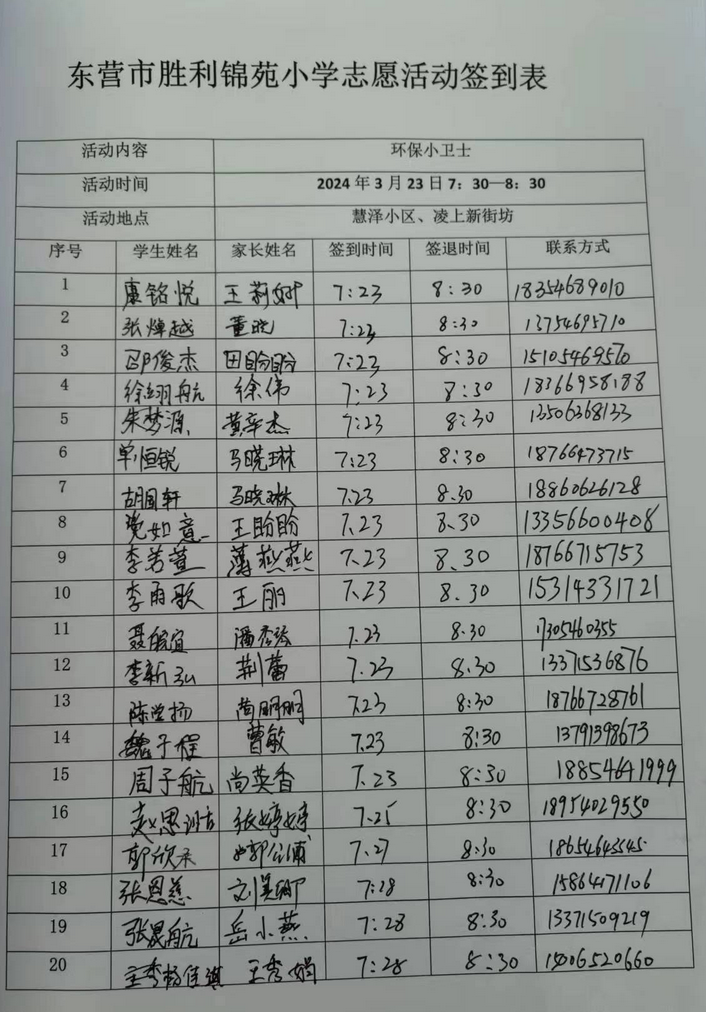 东营市胜利锦苑小学志愿活动签到表
活动内容 环保小卫士
活动时间 2024年3月23日7：30—8：30
活动地点 慧泽小区、凌上新街坊
序号 学生姓名 家长姓名 签到时间 签退时间 联系方式
1 康铭悦 王莉娜 7:23 8:30 18354689010
2 张焯越 董晓 7:23 8:30 13754695710
3 邵俊杰 田盼盼 7:23 8:30 15105469570
4 徐翊航 徐伟 7:23 8:30 18366958188
5 朱梦源 黄辛杰 7:23 8:30
6 单恒锐 马晓琳 7:23 8:30 18766473715
7 胡国轩 马晓琳 7.23 8.30 18860626128
8 党如意 王盼盼 7.23 8.30 13356600408
9 李芳萱 薄燕燕 7.23 8.30 18766715753
10 李雨歌 王丽 7.23 8.30 15314331721
11 聂皖宜 7.23 8.30 17305460355
12 李新弘 荆蕾 7.23 8.30 13371536876
13 陈学扬 尚朋朋 7.23 8:30 18766728761
14 魏子程 曹敏 7.23 8:30 13791398673
15 周子航 尚英香 7.23 8:30 18854641999
16 赵思 张婷婷 7.25 8:30 18954029550
17 郭欣禾 7.27 8:30
18 张恩慈 7:28 8:30 15864171106
19 张晟航 岳小燕 7:28 8:30 13371509219
20 王秀娟 7:28 8:30 15006520660